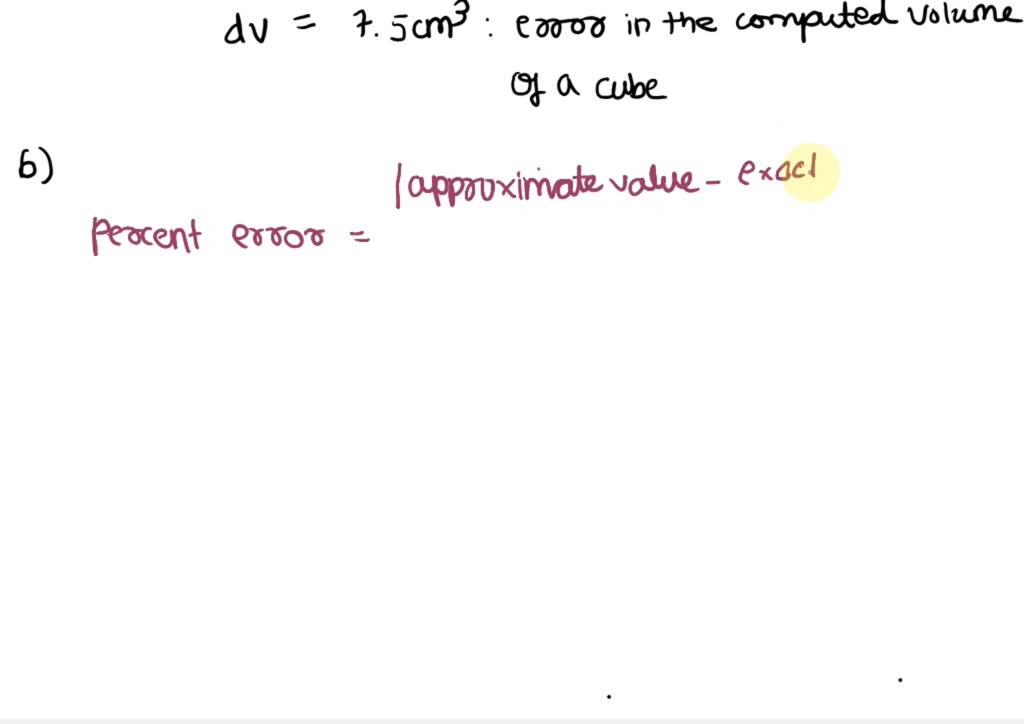 dv = 7.5cm³ : error in the computed volume
of a cube
b)
|approximate value - exact
percent error =